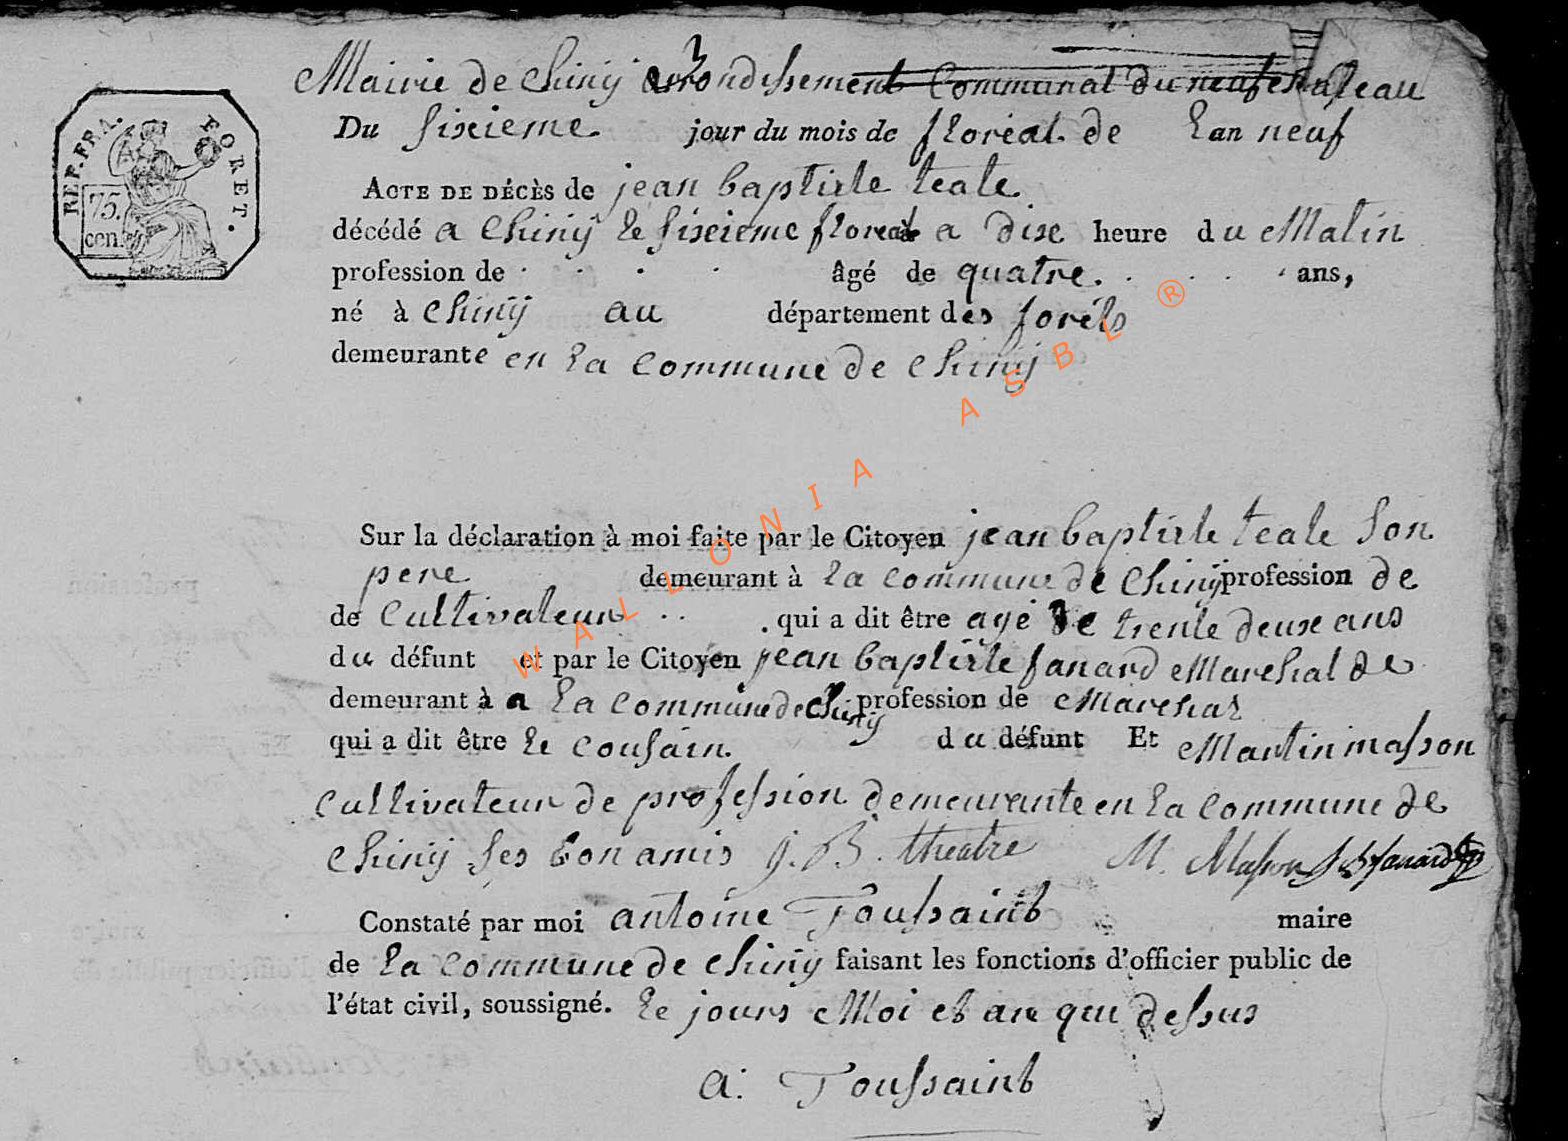 Mairie de Chiny arrondissement Communal du neufchateau
REP. FRA. FORET.
75. cen.
Du sixieme jour du mois de floréal de l'an neuf
ACTE DE DÉCÈS de jean baptiste teatre
décédé a Chiny le sixieme floreal a dixe heure du Matin
profession de . . . . âgé de quatre . . . . ans,
né à Chiny au département des forêts
demeurante en la commune de Chiny
Sur la déclaration à moi faite par le Citoyen jean baptiste teatre son
pere demeurant à la commune de Chiny profession de
de Cultivateur . . . qui a dit être agé de trente deuxe ans
du défunt et par le Citoyen jean baptiste fanard Mareshal de
demeurant à a la Commune de Chiny profession de Mareshal
qui a dit être le cousain du défunt Et Martin masson
Cultivateur de profession demeurante en la commune de
Chiny ses bon amis J. B. theatre M. Masson J b fanard
Constaté par moi antoine Toussaint maire
de la commune de Chiny faisant les fonctions d'officier public de
l'état civil, soussigné. le jours Moi et an que dessus
a: Toussaint
WALLONIA ASBL ®